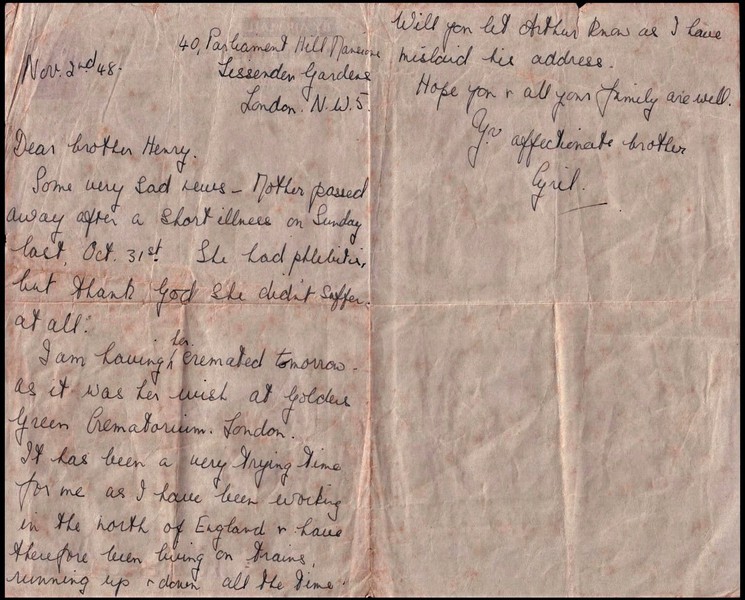 Nov. 2nd 48.
40, Parliament Hill Mansions
Lissenden Gardens
London. N.W.5.
Dear brother Henry.
Some very sad news - Mother passed
away after a short illness on Sunday
last, Oct. 31st. She had phlebitis,
but thank God she didn't suffer.
at all.
I am having her cremated tomorrow.
as it was her wish at Golders
Green Crematorium. London.
It has been a very trying time
for me as I have been working
in the north of England & have
therefore been living on trains,
running up & down all the time.
Will you let Arthur know as I have
mislaid his address.
Hope you & all your family are well.
Yr affectionate brother
Cyril.